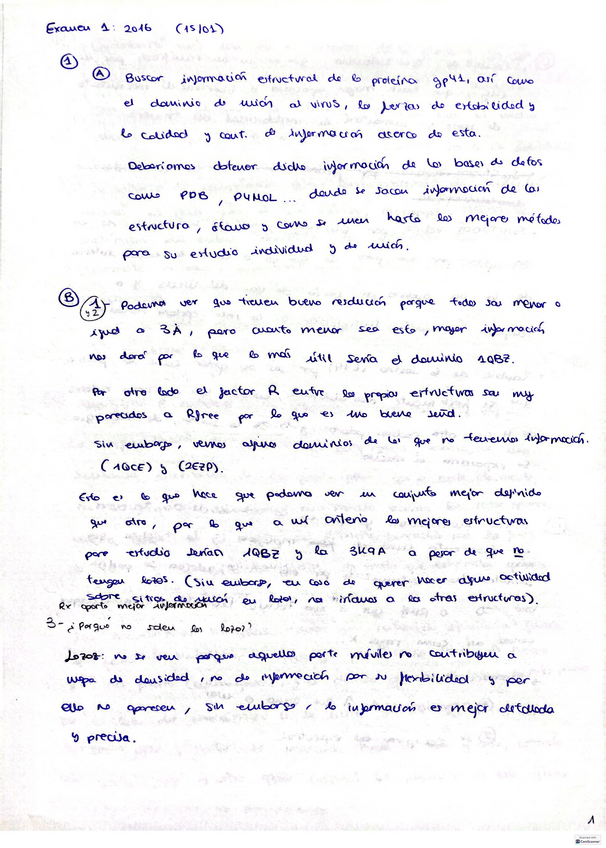 Examen 1: 2016 (15/01)
1
A Buscar información estructural de la proteína gp41, así como
el dominio de unión al virus, las fuerzas de estabilidad y
la calidad y cant. de información acerca de esta.
Deberíamos obtener dicha información de las bases de datos
como PDB, PYMOL... donde se sacan información de las
estructura, y como se unen hasta los mejores métodos
para su estudio individual y de unión.
B 1 y 2 - Podemos ver que tienen buena resolución porque todas son menor o
igual a 3Å, pero cuanto menor sea esto, mayor información
nos dará por lo que la más útil sería el dominio 1QBZ.
Por otro lado el factor R entre las propias estructuras son muy
parecidos a Rfree por lo que es una buena señal.
Sin embargo, vemos algunos dominios de los que no tenemos información.
(1QCE) y (2EZP).
Esto es lo que hace que podamos ver un conjunto mejor definido
que otro, por lo que a mi criterio las mejores estructuras
para estudio serían 1QBZ y la 3K9A a pesar de que no
tengan lazos. (Sin embargo, en caso de querer hacer alguna actividad
sobre sitios de unión en lazos, no iríamos a las otras estructuras).
Rx aporta mejor información
3- ¿Porqué no salen los lazos?
Lazos: no se ven porque aquellas parte móviles no contribuyen a
mapa de densidad, no da información por su flexibilidad y por
ello no aparecen, sin embargo, la información es mejor detallada
y precisa.
1
CamScanner